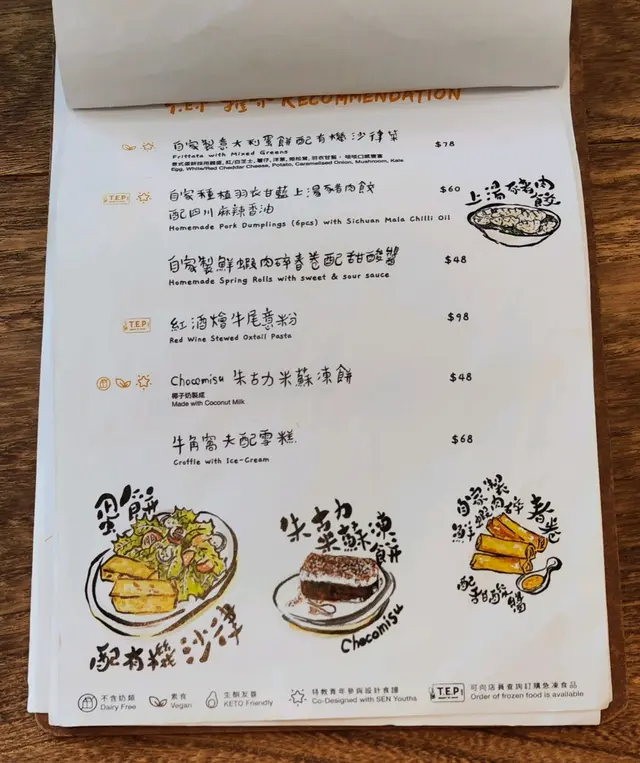 T.E.P 推介 RECOMMENDATION
自家製意大利蛋餅配有機沙律菜 $78
Frittata with Mixed Greens
Egg, White/Red Cheddar Cheese, Potato, Caramelized Onion, Mushroom, Kale
T.E.P. 自家種植羽衣甘藍上湯豬肉餃 $60
配四川麻辣香油
Homemade Pork Dumplings (6pcs) with Sichuan Mala Chilli Oil
上湯豬肉餃
自家製鮮蝦肉碎春卷配甜酸醬 $48
Homemade Spring Rolls with sweet & sour sauce
T.E.P. 紅酒燴牛尾意粉 $98
Red Wine Stewed Oxtail Pasta
Chocomisu 朱古力米蘇凍餅 $48
椰子奶製成
Made with Coconut Milk
牛角窩夫配雪糕 $68
Croffle with Ice-Cream
蛋餅
配有機沙律
朱古力
米蘇凍餅
Chocomisu
自家製
鮮蝦肉碎春卷
配甜酸醬
不含奶類
Dairy Free
素食
Vegan
生酮友善
KETO Friendly
特教青年參與設計食譜
Co-Designed with SEN Youths
T.E.P. 可向店員查詢訂購急凍食品
Order of frozen food is available